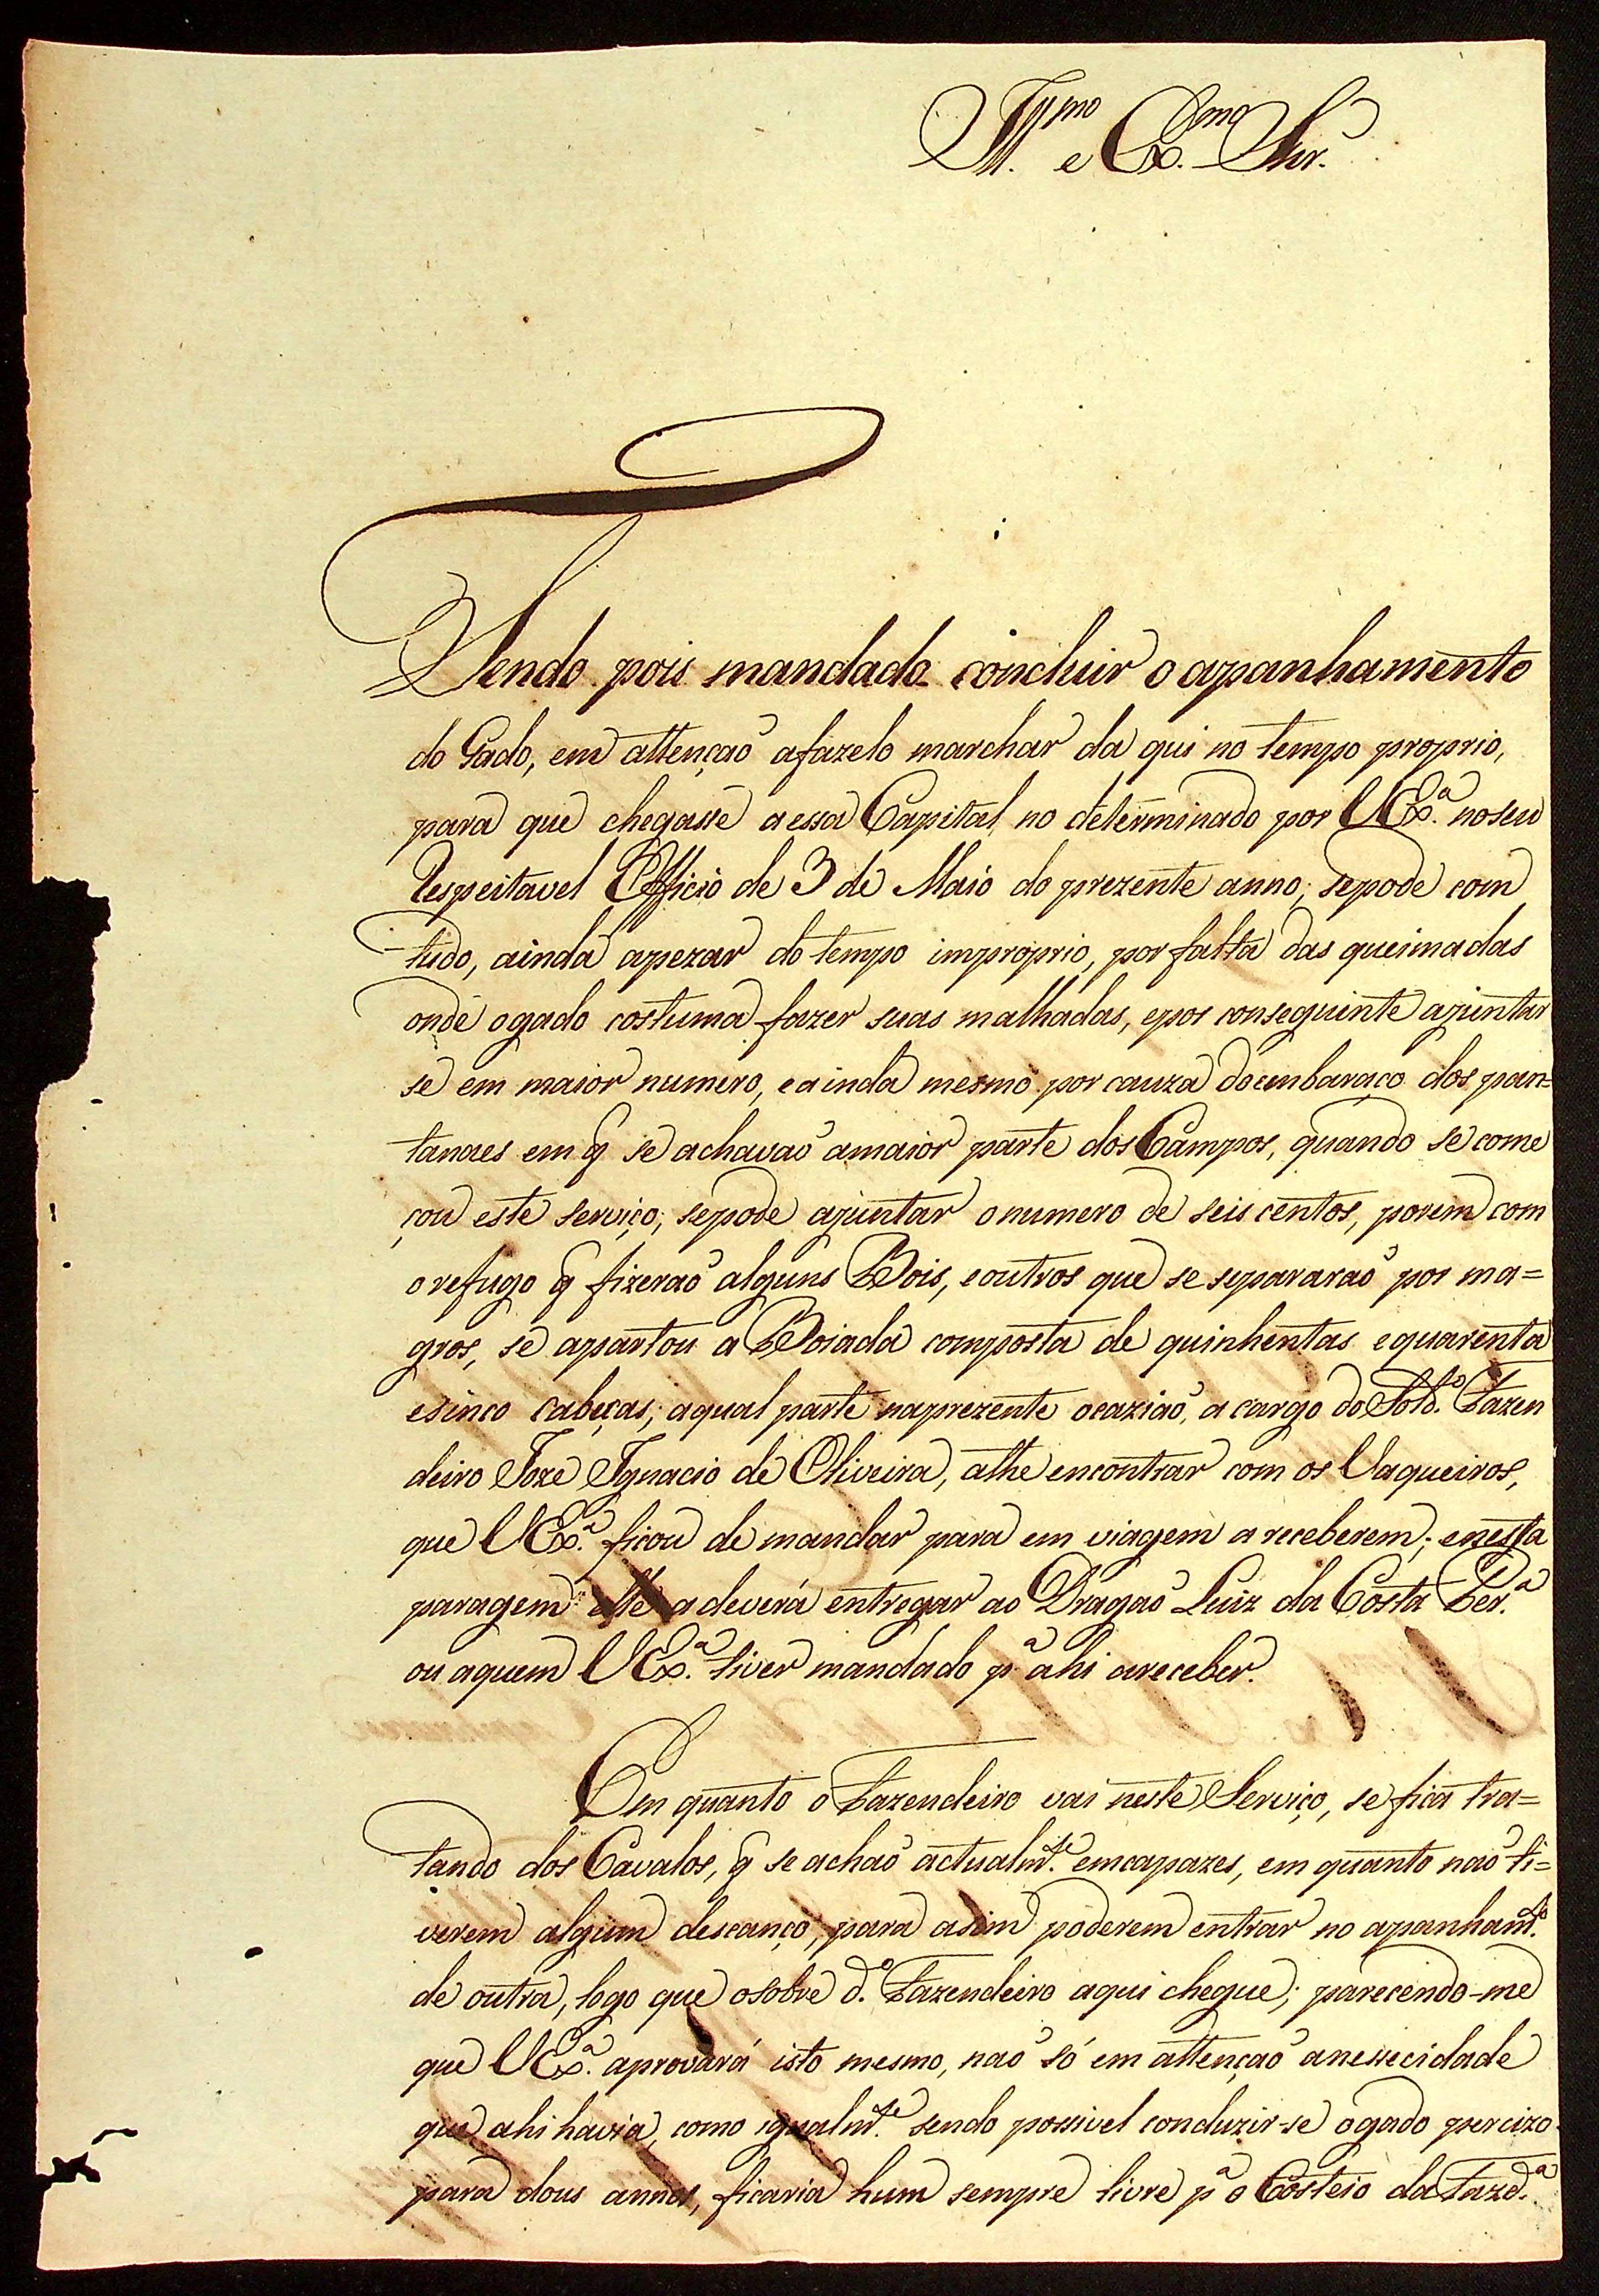 Ill.mo e Ex.mo Snr.
Tendo pois mandado concluir o apanhamento
do Gado, em attençaõ afazelo marchar da qui no tempo proprio,
para que chegasse a essa Capital no determinado por VEx.ª noseu
Respeitavel Officio de 3 de Maio do prezente anno; sepode com
tudo, ainda apezar do tempo improprio, por falta das queimadas
onde ogado costuma fazer suas malhadas, epor conseguinte ajuntar
se em maior numero, eainda mesmo por cauza doembaraço dos pan=
tanaes em q̃ se achavaõ amaior parte dos Campos, quando se come
çou este serviço; sepode ajuntar onumero de seis centos, porem com
orefugo q̃ fizeraõ alguns Bois, eoutros que se separaraõ por ma=
gros, se apartou a Boiada composta de quinhentas equarenta
esinco cabeças; aqual parte naprezente ocaziaõ, a cargo do Sold.º Fazen
deiro Joze Ignacio de Oliveira, athe encontrar com os Vaqueiros,
que VEx.ª ficou de mandar para em viagem a receberem; enessa
paragem elle adeverá entregar ao Dragaõ Luiz da Costa Per.ª
ou aquem VEx.ª tiver mandado p.ª ahi areceber.
Em quanto o Fazendeiro vai neste Serviço, se fica tra=
tando dos Cavalos, q̃ se achaõ actualm.te emcapazes, em quanto naõ ti=
verem algum descanço, para asim poderem entrar no apanham.to
de outra, logo que osobre d.º Fazendeiro aqui chegue; parecendo-me
que VEx.ª aprovará isto mesmo, naõ só em attençaõ anessecidade
que ahi havia, como igualm.te sendo possivel conduzir-se ogado percizo
para dous annos, ficaria hum sempre livre p.ª o Costeio da Fazd.ª